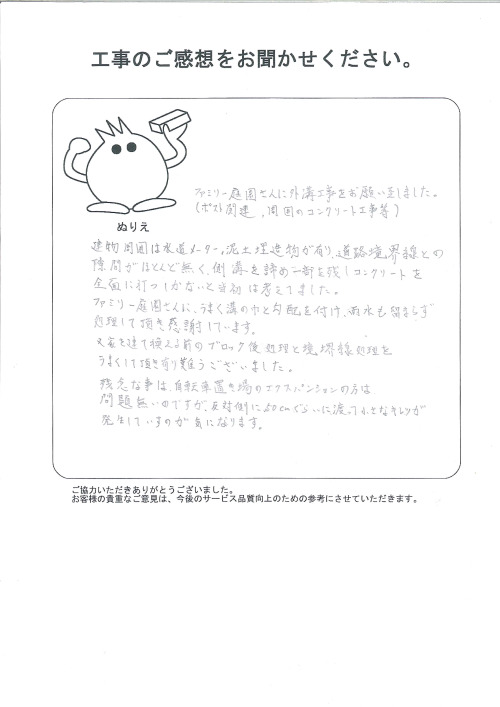 工事のご感想をお聞かせください。
ぬりえ
ファミリー庭園さんに外溝工事をお願い致しました。
(ポスト関連、周囲のコンクリート工事等)
建物周囲は水道メーター、泥土埋造物が有り、道路境界線との
隙間がほとんど無く、側溝を諦め一部を残しコンクリートを
全面に打つしかないと当初は考えてました。
ファミリー庭園さんに、うまく溝の巾と勾配を付け、雨水も留まらず
処理して頂き感謝しています。
又家を建て換える前のブロック後処理と境堺線処理を
うまくして頂き有り難うございました。
残念な事は、自転車置き場のエクスパンションの方は
問題無いのですが、反対側に50cmぐらいに渡って小さなキレツが
発生しているのが気になります。
ご協力いただきありがとうございました。
お客様の貴重なご意見は、今後のサービス品質向上のための参考にさせていただきます。